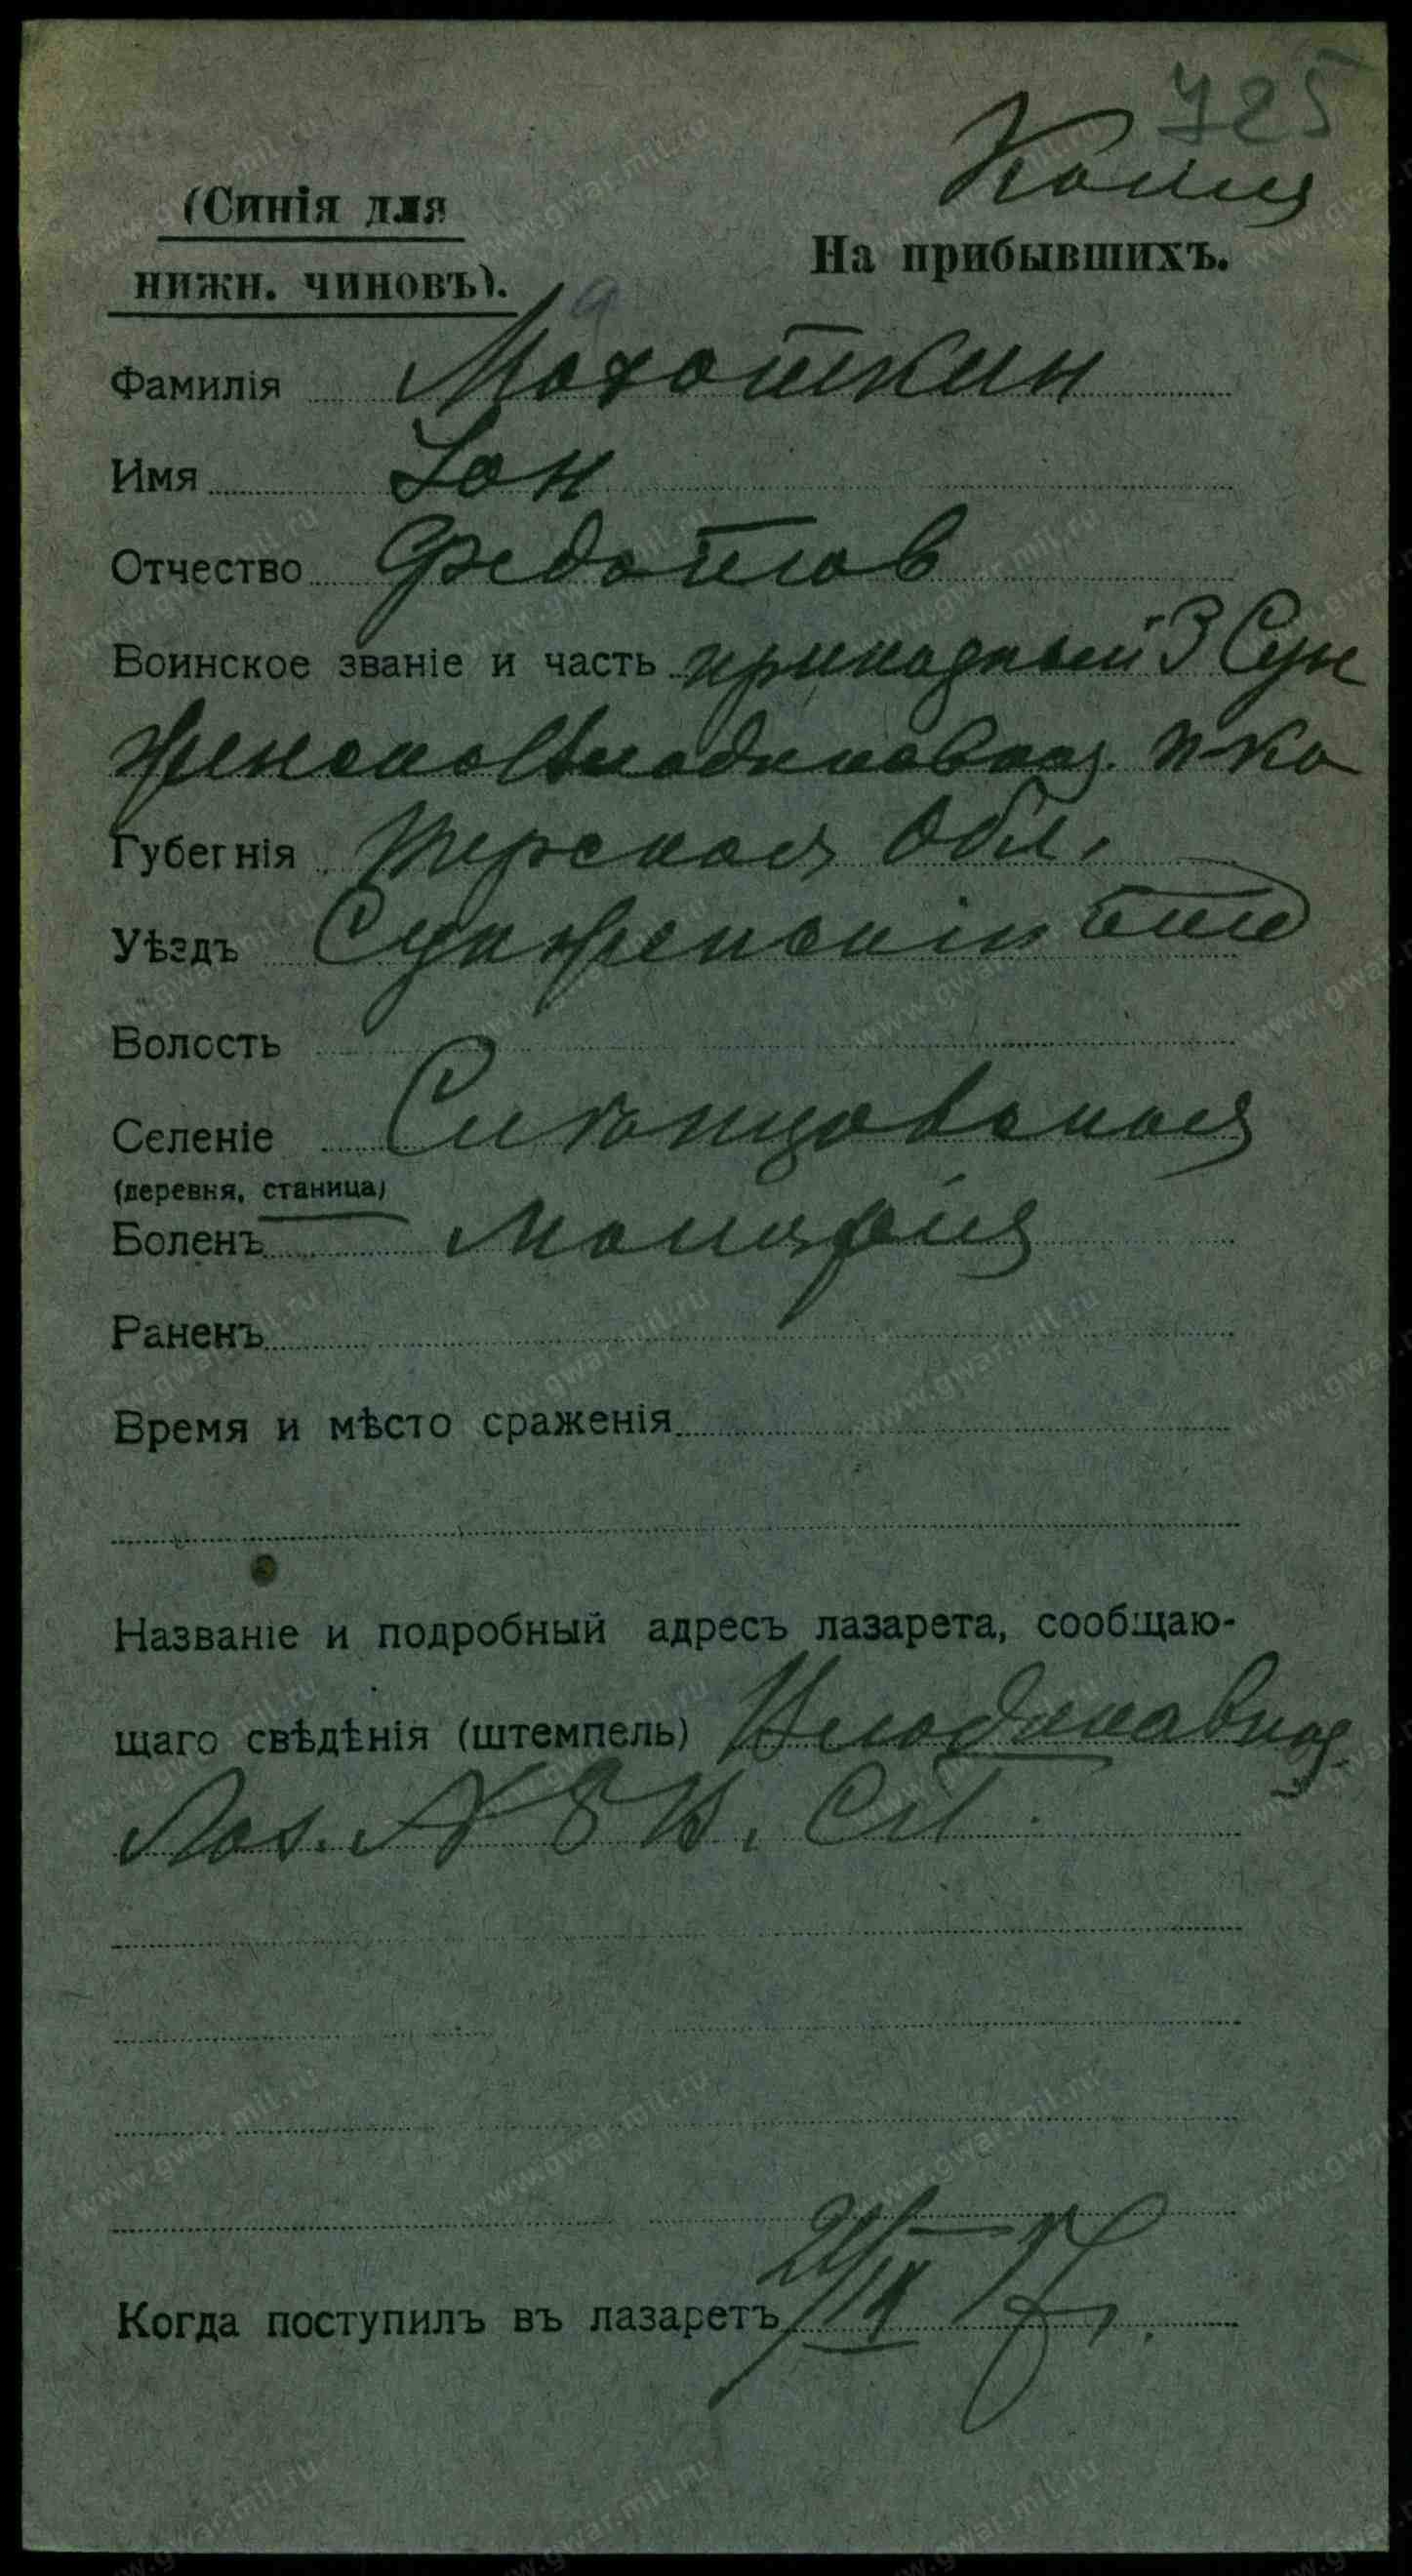 725
Копия
(Синія для
нижн. чиновъ).
На прибывшихъ.
Фамилія Мохоткин
Имя Іон
Отчество Федотов
Воинское званіе и часть приказный 3 Сун
женско Владикавказ. п-ка
Губернія Терская Обл.
Уѣздъ Сунженскій отд
Волость
Селеніе Слепцовская
(деревня, станица)
Боленъ Малярия
Раненъ
Время и мѣсто сраженія
Названіе и подробный адресъ лазарета, сообщаю-
щаго свѣдѣнія (штемпель) Владикавказ.
Лаз. № В. С.
Когда поступилъ въ лазаретъ 21/IX 17 г.